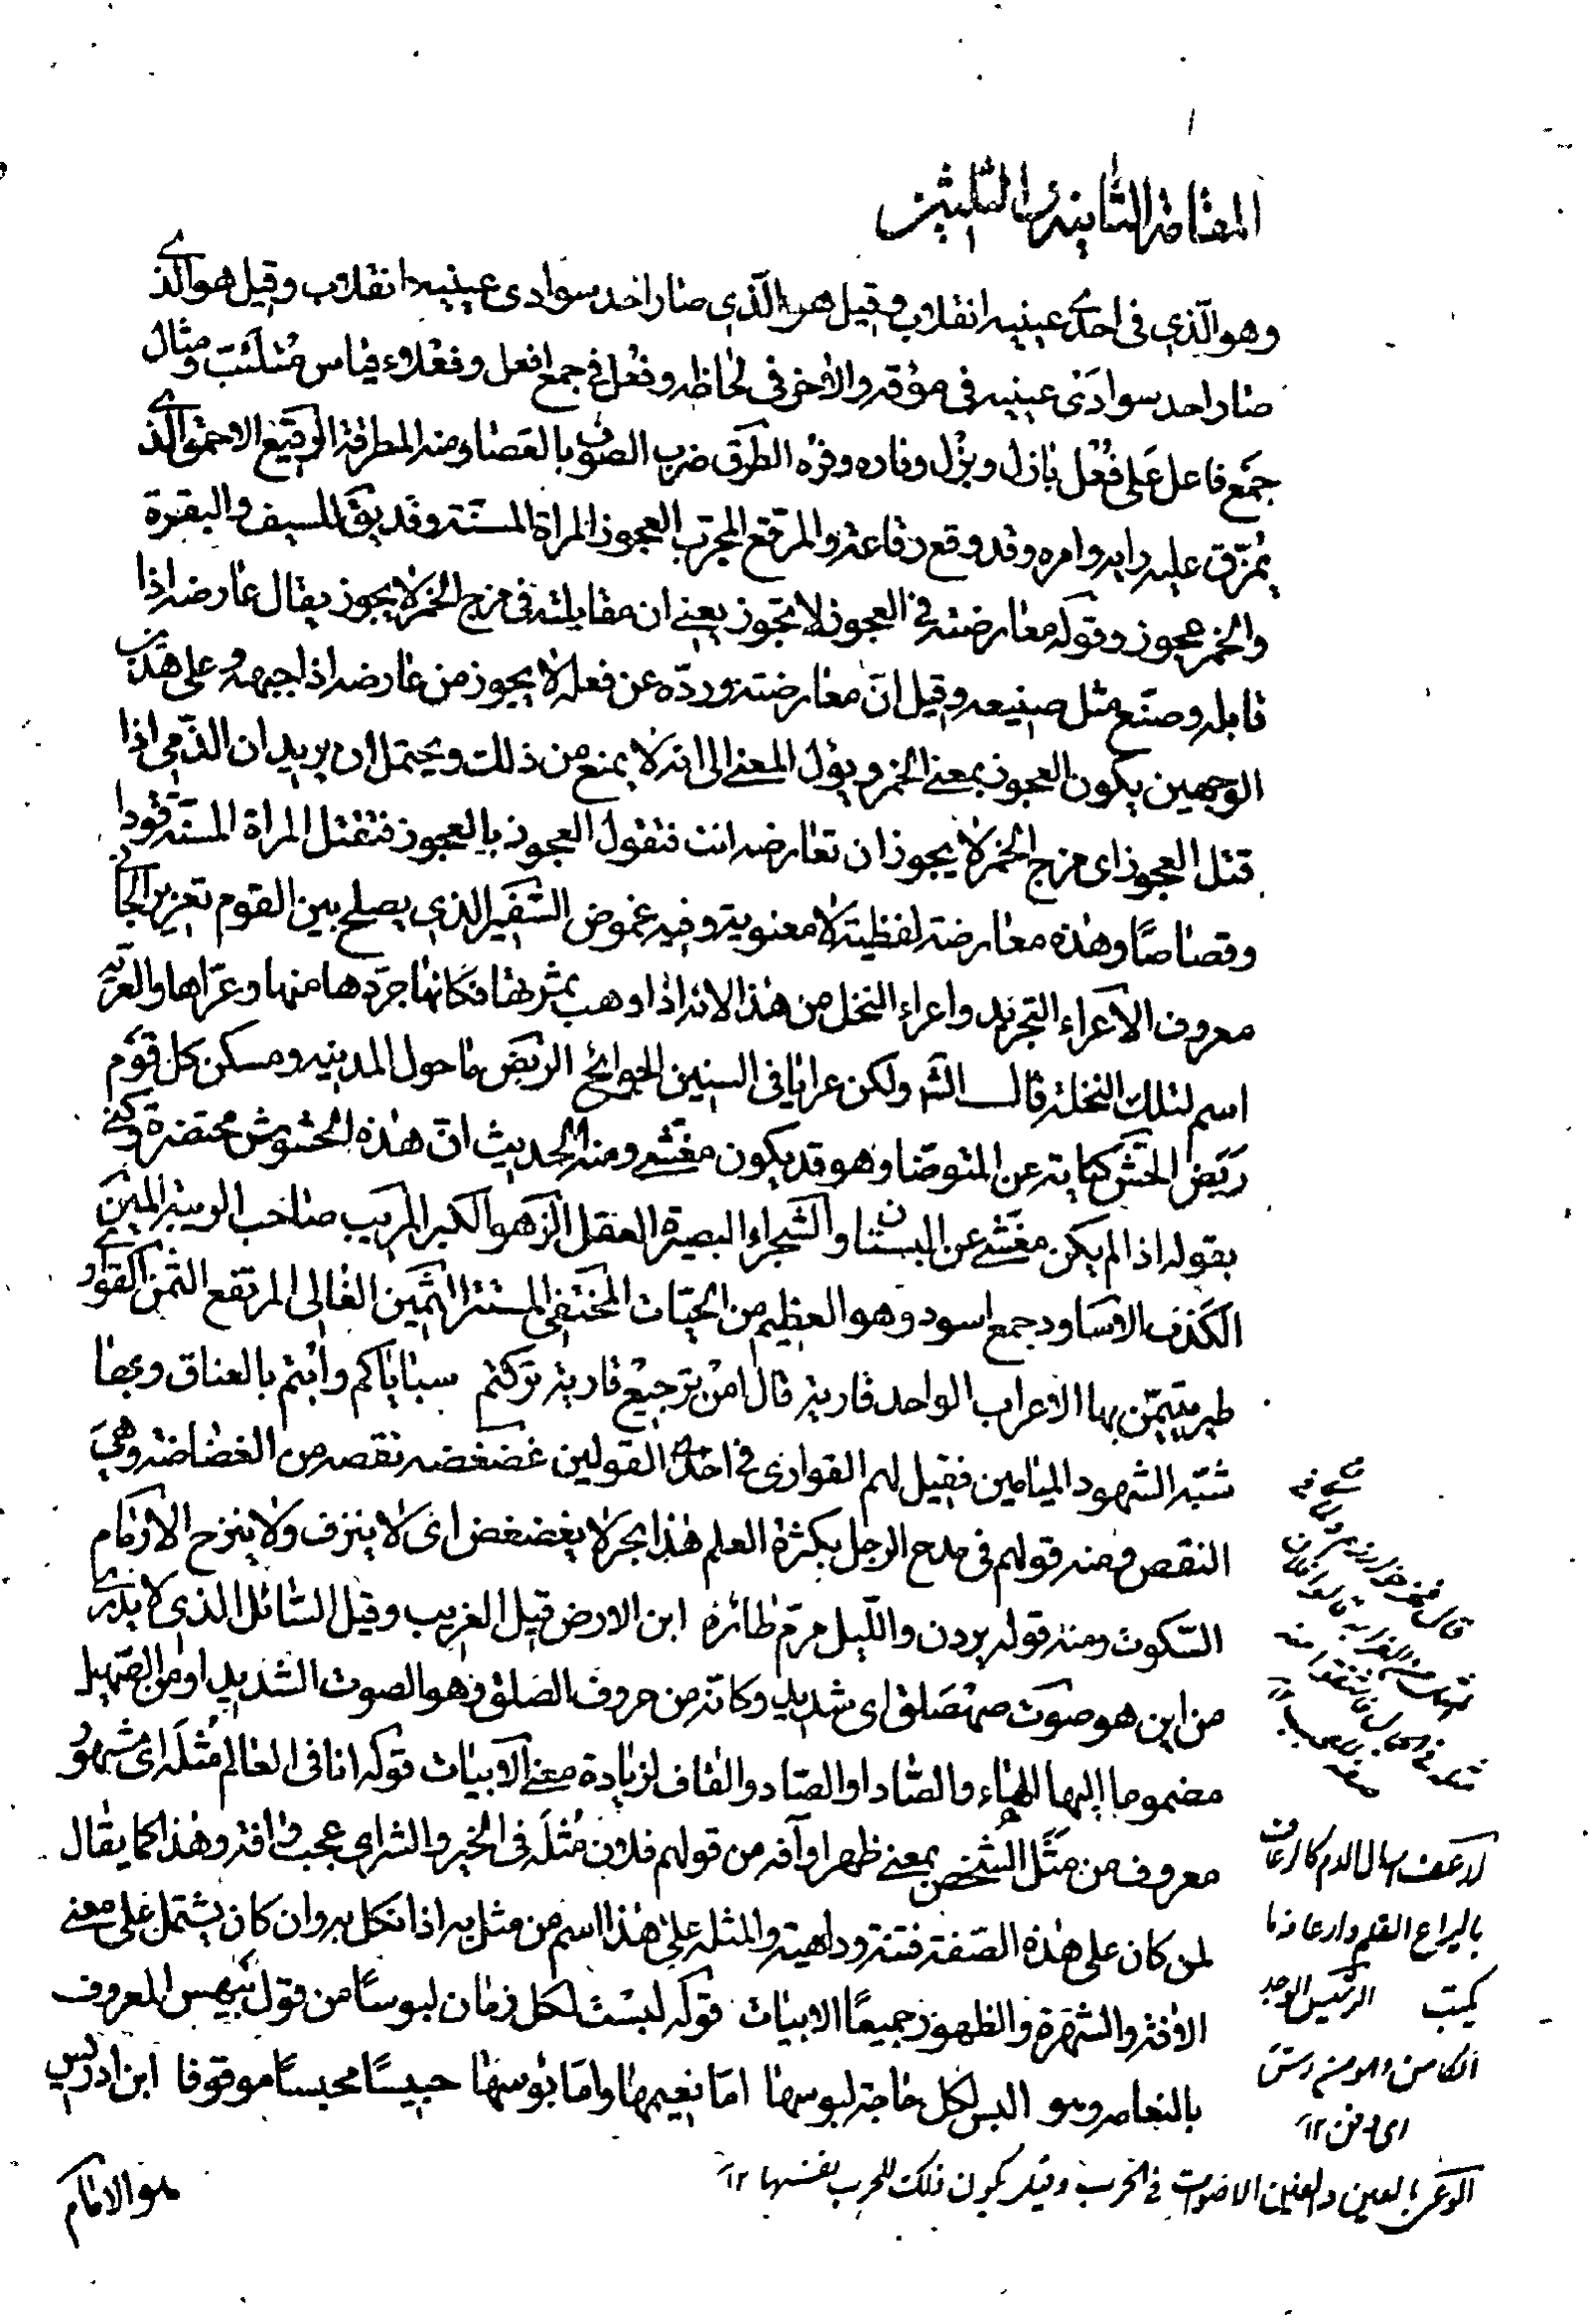 المقامة الثانية والثلثين
وهو الّذي في احدى عينيه انقلاب وقيل هو الّذي صار احد سوادي عينيه انقلاب وقيل هو الّذي
صار احد سوادَي عينيه في موقه والاخر في لحاظه وفُعل في جمع افعل وفعلاء قياس مُتْلَئبّ ومثال
جمع فاعل على فُعْل بازل وبُزْل وفاره وفُرْه الطَرْق ضرب الصّوف بالعصا ومنه المطرقة الرقيع الاحمق الذي
يمزّق عليه رايه وامره وقد رقع رقاعة والمرقّع المجرّب العجوز المراة المسنّة وقد يقَ للسيف والبقرة
والخمر عجوز وقوله معارضته في العجوز لا تجوز يعني ان مقابلته في مزج الخمر لا يجوز يقال عارضه اذا
قابله وصنع مثل صنيعه وقيل انّ معارضته وردّه عن فعله لا يجوز من عارضه اذا جبهه وعلى هذين
الوجهين يكون العجوز بمعنى الخمر ويؤل المعنى الى انه لا يمنع من ذلك ويحتمل ان يريد ان الذّمي اذا
قتل العجوز اى مزج الخمر لا يجوز ان تعارضه انت فتقول العجوز بالعجوز فتقتل المراة المسنّة قودا
وقصاصًا وهذه معارضة لفظية لا معنوية وفيه غموض السَّفير الذي يصلح بين القوم تعزير الجانى
معروف الاَعراء التجريد واعراء النخل من هذا لانه اذا وهب ثمرتها فكانها جرّدها منها وعرّاها والعريّة
اسم لتلك النخلة قال الشّ ولكن عرايا في السنين الجوائح الربَض ما حول المدينه ومسكن كل قوم
ربَض الحَشّ كناية عن المتوضّا وهو قد يكون مغشّى ومنه الحديث انّ هذه الحشوش محتضرة وكنى
بقوله اذا لم يكن مغشّى عن البستان والشجراء البصيرة العقل الزهو الكبر المريب صاحب الريبة المين
الكذب الاساود جمع اسود وهو العظيم من الحيّات المختفى المستتر الثمين الغالى المرتفع الثمن القوارى
طير يتيمّن بها الاعراب الواحد قارية قال امن ترجيع قارية تركتم سباياكم وأبتم بالعناق وبها
شبّه الشهود الميامين فقيل لهم القوارى في احد القولين غضغضه نقصه من الغضاضة وهى
النقص ومنه قولهم في مدح الرجل بكثرة العلم هذا بحر لا يغضغض اى لا ينزف ولا ينزح الارمام
السّكوت ومنه قوله يردن واللّيل مرمّ طائره ابن الارض قيل الغريب وقيل السّائل الذى لا يدرى
من اين هو صوت صهصَلق اى شديد وكانه من حروف الصلق وهو الصوت الشديد او من الصهيل
مضموما اليها الهاء والصّاد او الصّاد والقاف لزيادة معنى الابيات قوله انا في العالم مُثْلَه اى شهو
معروف من مثَّل الشخص بمعنى ظهر او آفه من قولهم فلان مُثْلَه في الخير والشر اى عجب وافة وهذا كما يقال
لمن كان على هذه الصّفة فتنة وداهية والمثله على هذا اسم من مثل به اذا نكل به وان كان يشتمل على معنى
الافة والشهرة والظهور جميعًا الابيات قوله لبست لكل زمان لبوسًا من قول بَيْهس المعروف
بالنعامة وهو البس لكل حاجة لبوسها امّا نعيمها وامّا بؤسها حبيسًا محبسًا موقوفا ابن ادريس
هو الامام
بالعين والغين الاصوات في الحرب وقيل يكون تلك للحرب بنفسها ١٢